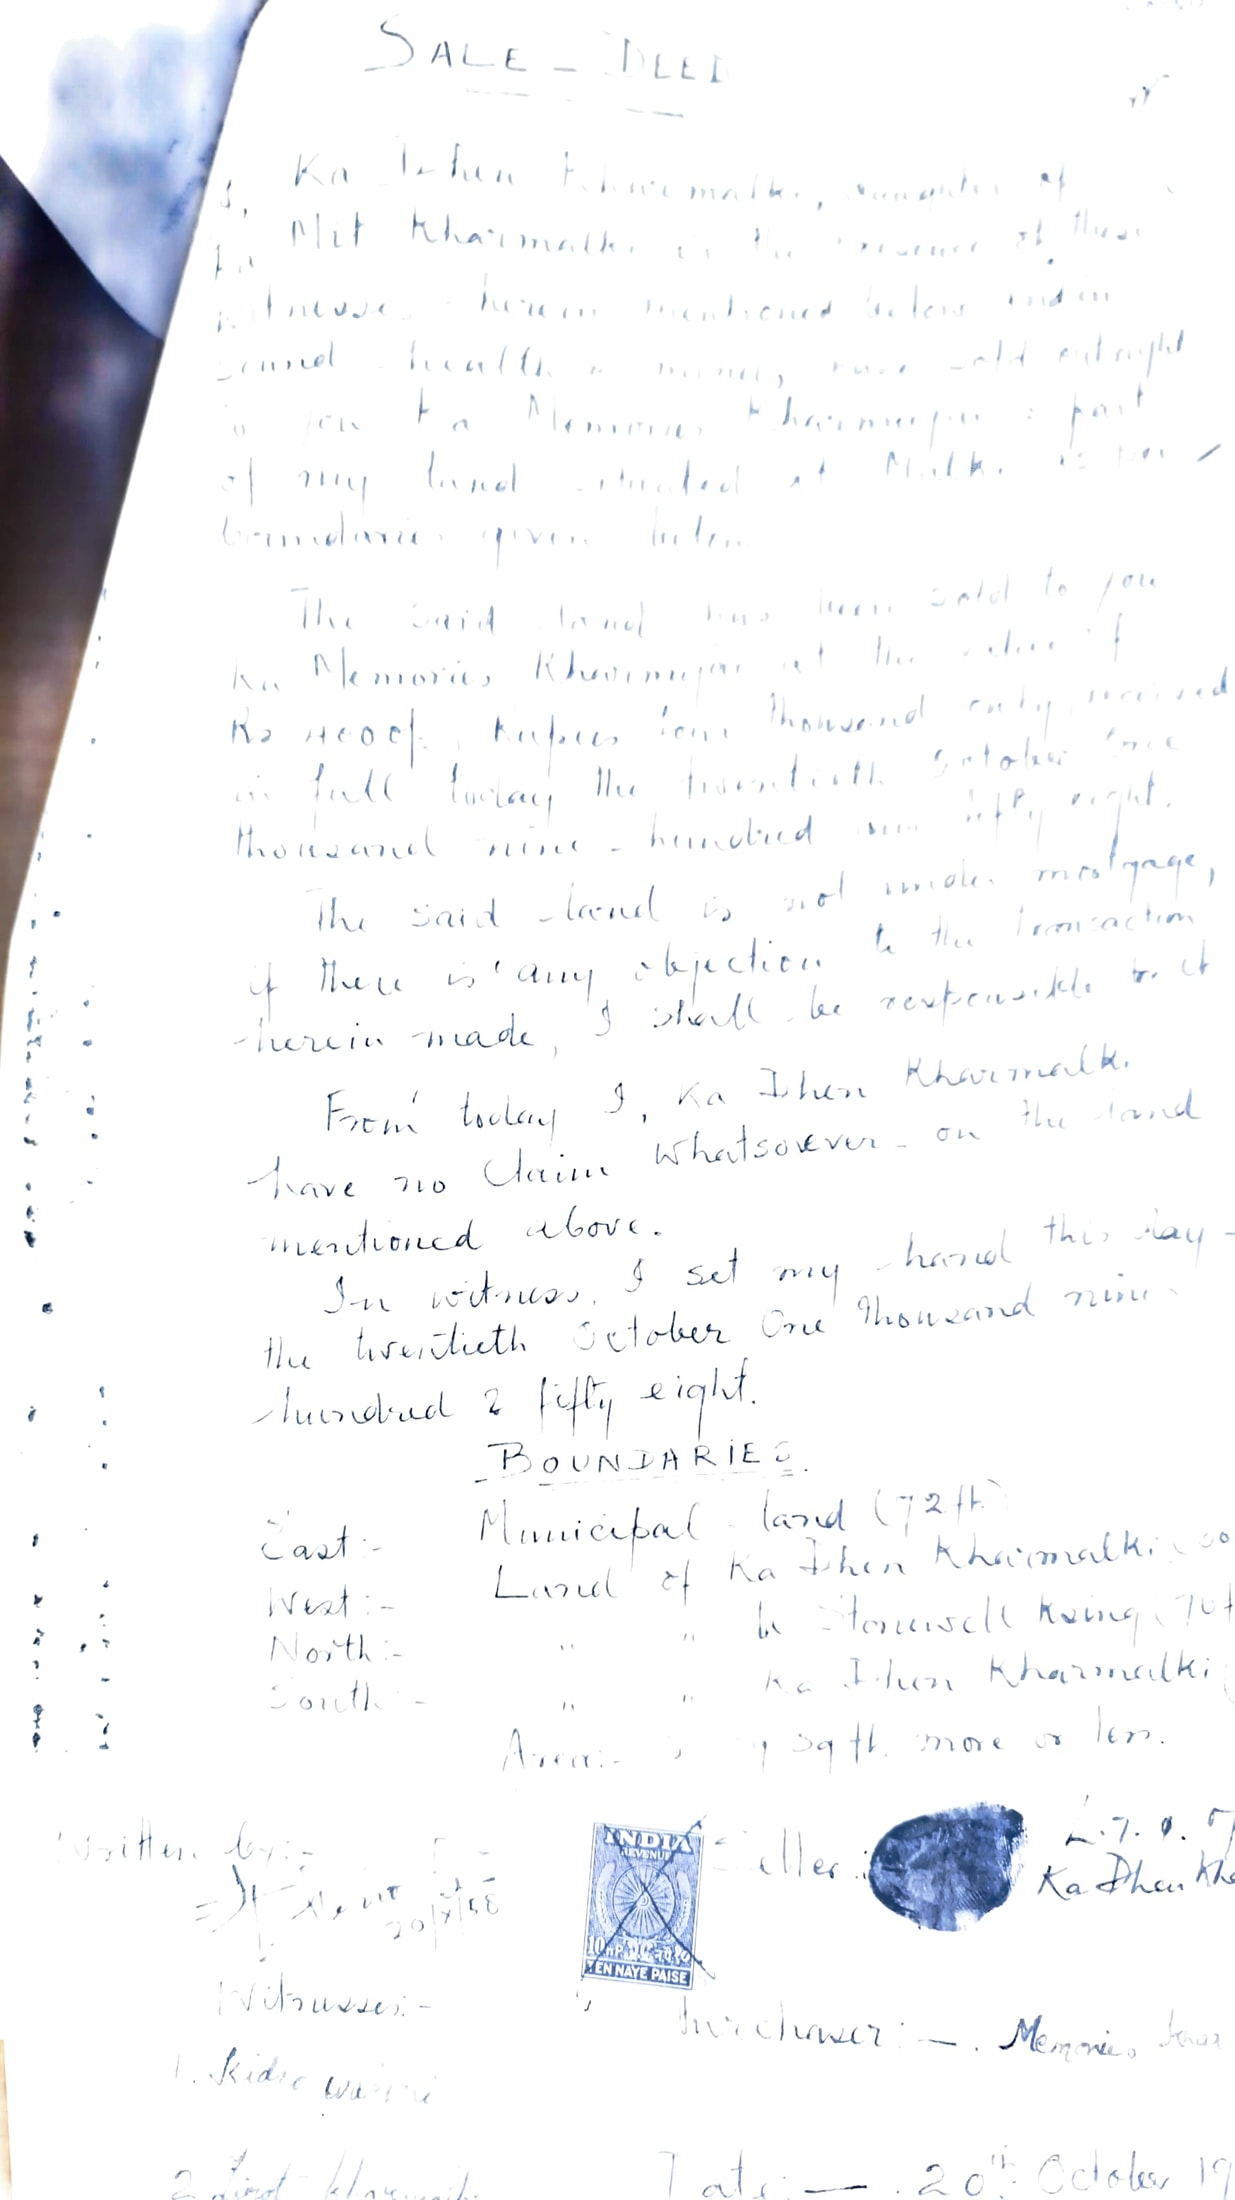 SALE - DEED
I, Ka Ithen Kharmalki, daughter of
Ka Mit Kharmalki in the presence of these
witnesses herein mentioned below and in
sound health & mind, have sold outright
to you Ka Memories Kharmujai a part
of my land situated at Malki as per
boundaries given below.
The said land has been sold to you
Ka Memories Kharmujai at the value of
Rs 4000/- Rupees four thousand only, received
in full today the twentieth October One
thousand nine hundred and fifty eight.
The said land is not under mortgage,
if there is any objection to the transaction
herein made, I shall be responsible to it
From today I, Ka Ithen Kharmalki
have no claim whatsoever on the land
mentioned above.
In witness, I set my hand this day
the twentieth October One thousand nine
hundred & fifty eight.
BOUNDARIES
East:- Municipal land (72 ft)
West:- Land of Ka Ithen Kharmalki
North:- " " Stonewell Ksing
South:- " " Ka Ithen Kharmalki
Area:- sq ft. more or less.
Written by:-
20/X/58
INDIA
REVENUE
10 nP.
TEN NAYE PAISE
Seller:
Ka Ithen
Witnesses:-
Purchaser:- Memories
1.
2.
Date:- 20th October 19